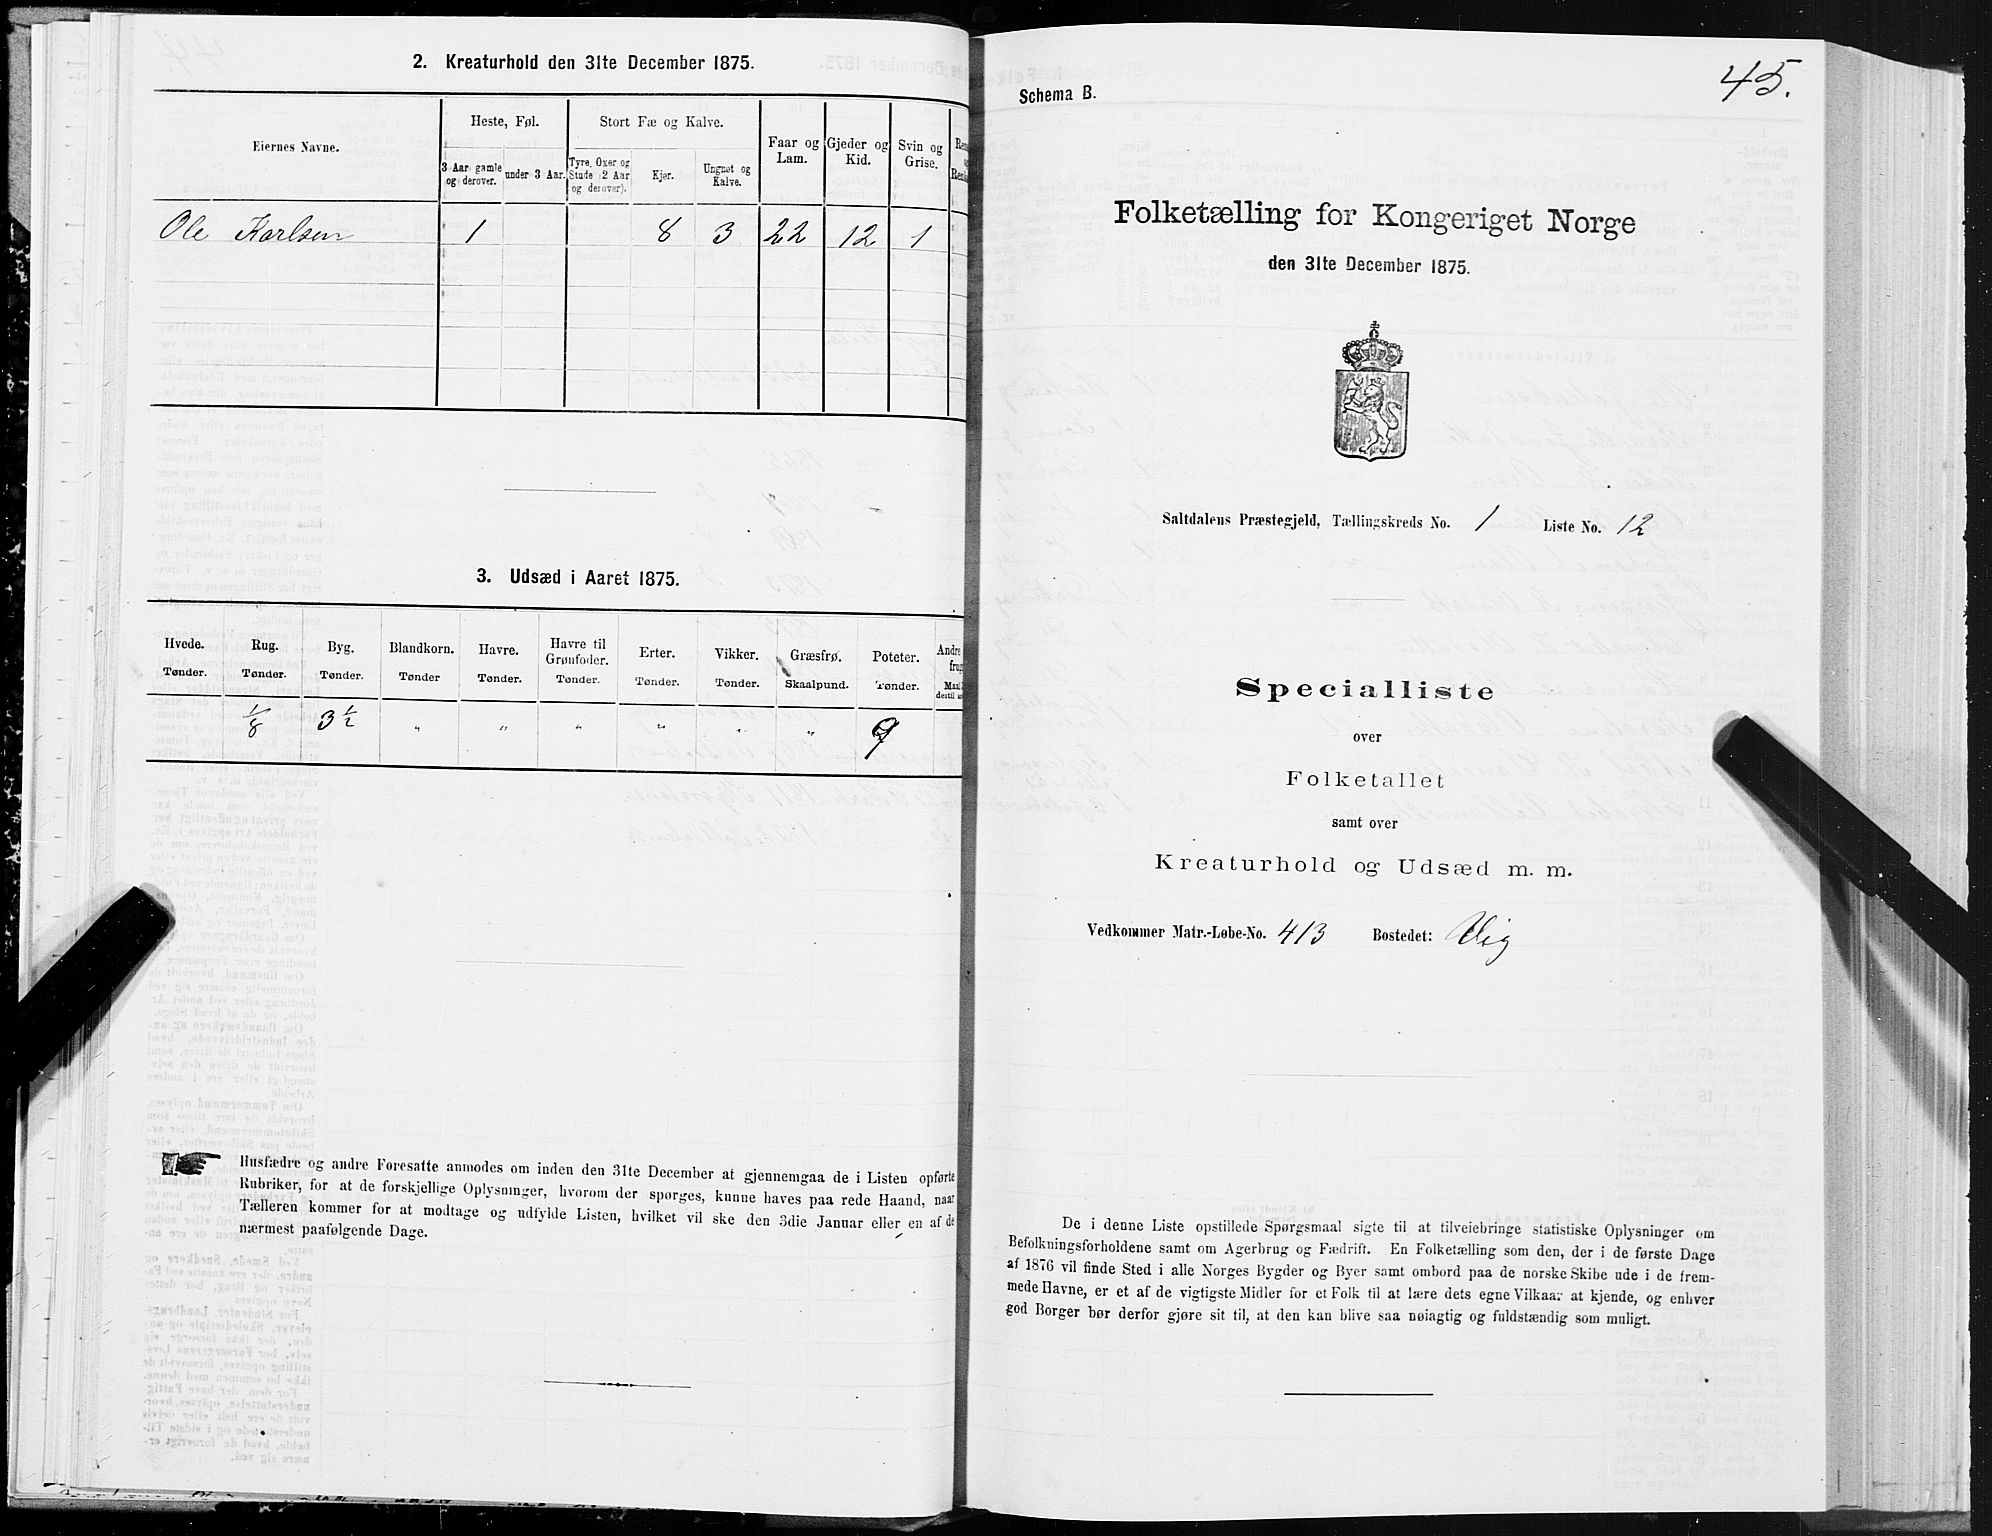 2. Kreaturhold den 31te December 1875.
Eiernes Navne.
Heste, Føl.
Stort Fæ og Kalve.
Faar og Lam.
Gjeder og Kid.
Svin og Grise.
3 Aar gamle og derover.
under 3 Aar.
Tyre, Oxer og Stude (2 Aar og derover).
Kjør.
Ungnøt og Kalve.
Ole Karlsen 1 8 3 22 12 1
3. Udsæd i Aaret 1875.
Hvede. Rug. Byg. Blandkorn. Havre. Havre til Grønfoder. Erter. Vikker. Græsfrø. Poteter. Andre
Tønder. Tønder. Tønder. Tønder Tønder. Tønder. Tønder. Tønder. Skaalpund. Tønder.
1/8 3 1/2 " " " " " " 9
Husfædre og andre Foresatte anmodes om inden den 31te December at gjennemgaa de i Listen opførte
Rubriker, for at de forskjellige Oplysninger, hvorom der spørges, kunne haves paa rede Haand, naar
Tælleren kommer for at modtage og udfylde Listen, hvilket vil ske den 3die Januar eller en af de
nærmest paafølgende Dage.
45.
Schema B.
Folketælling for Kongeriget Norge
den 31te December 1875.
Saltdalens Præstegjeld, Tællingskreds No. 1 Liste No. 12
Specialliste
over
Folketallet
samt over
Kreaturhold og Udsæd m. m.
Vedkommer Matr.-Løbe-No. 413 Bostedet: Vig
De i denne Liste opstillede Spørgsmaal sigte til at tilveiebringe statistiske Oplysninger om
Befolkningsforholdene samt om Agerbrug og Fædrift. En Folketælling som den, der i de første Dage
af 1876 vil finde Sted i alle Norges Bygder og Byer samt ombord paa de norske Skibe ude i de frem-
mede Havne, er et af de vigtigste Midler for et Folk til at lære dets egne Vilkaar at kjende, og enhver
god Borger bør derfor gjøre sit til, at den kan blive saa nøiagtig og fuldstændig som muligt.